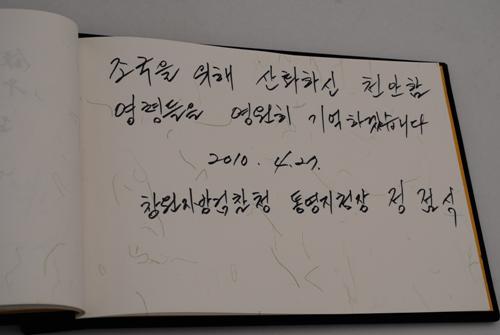 조국을 위해 산화하신 천안함
영령들을 영원히 기억하겠습니다
2010. 4.27.
창원지방검찰청 통영지청장 정점식